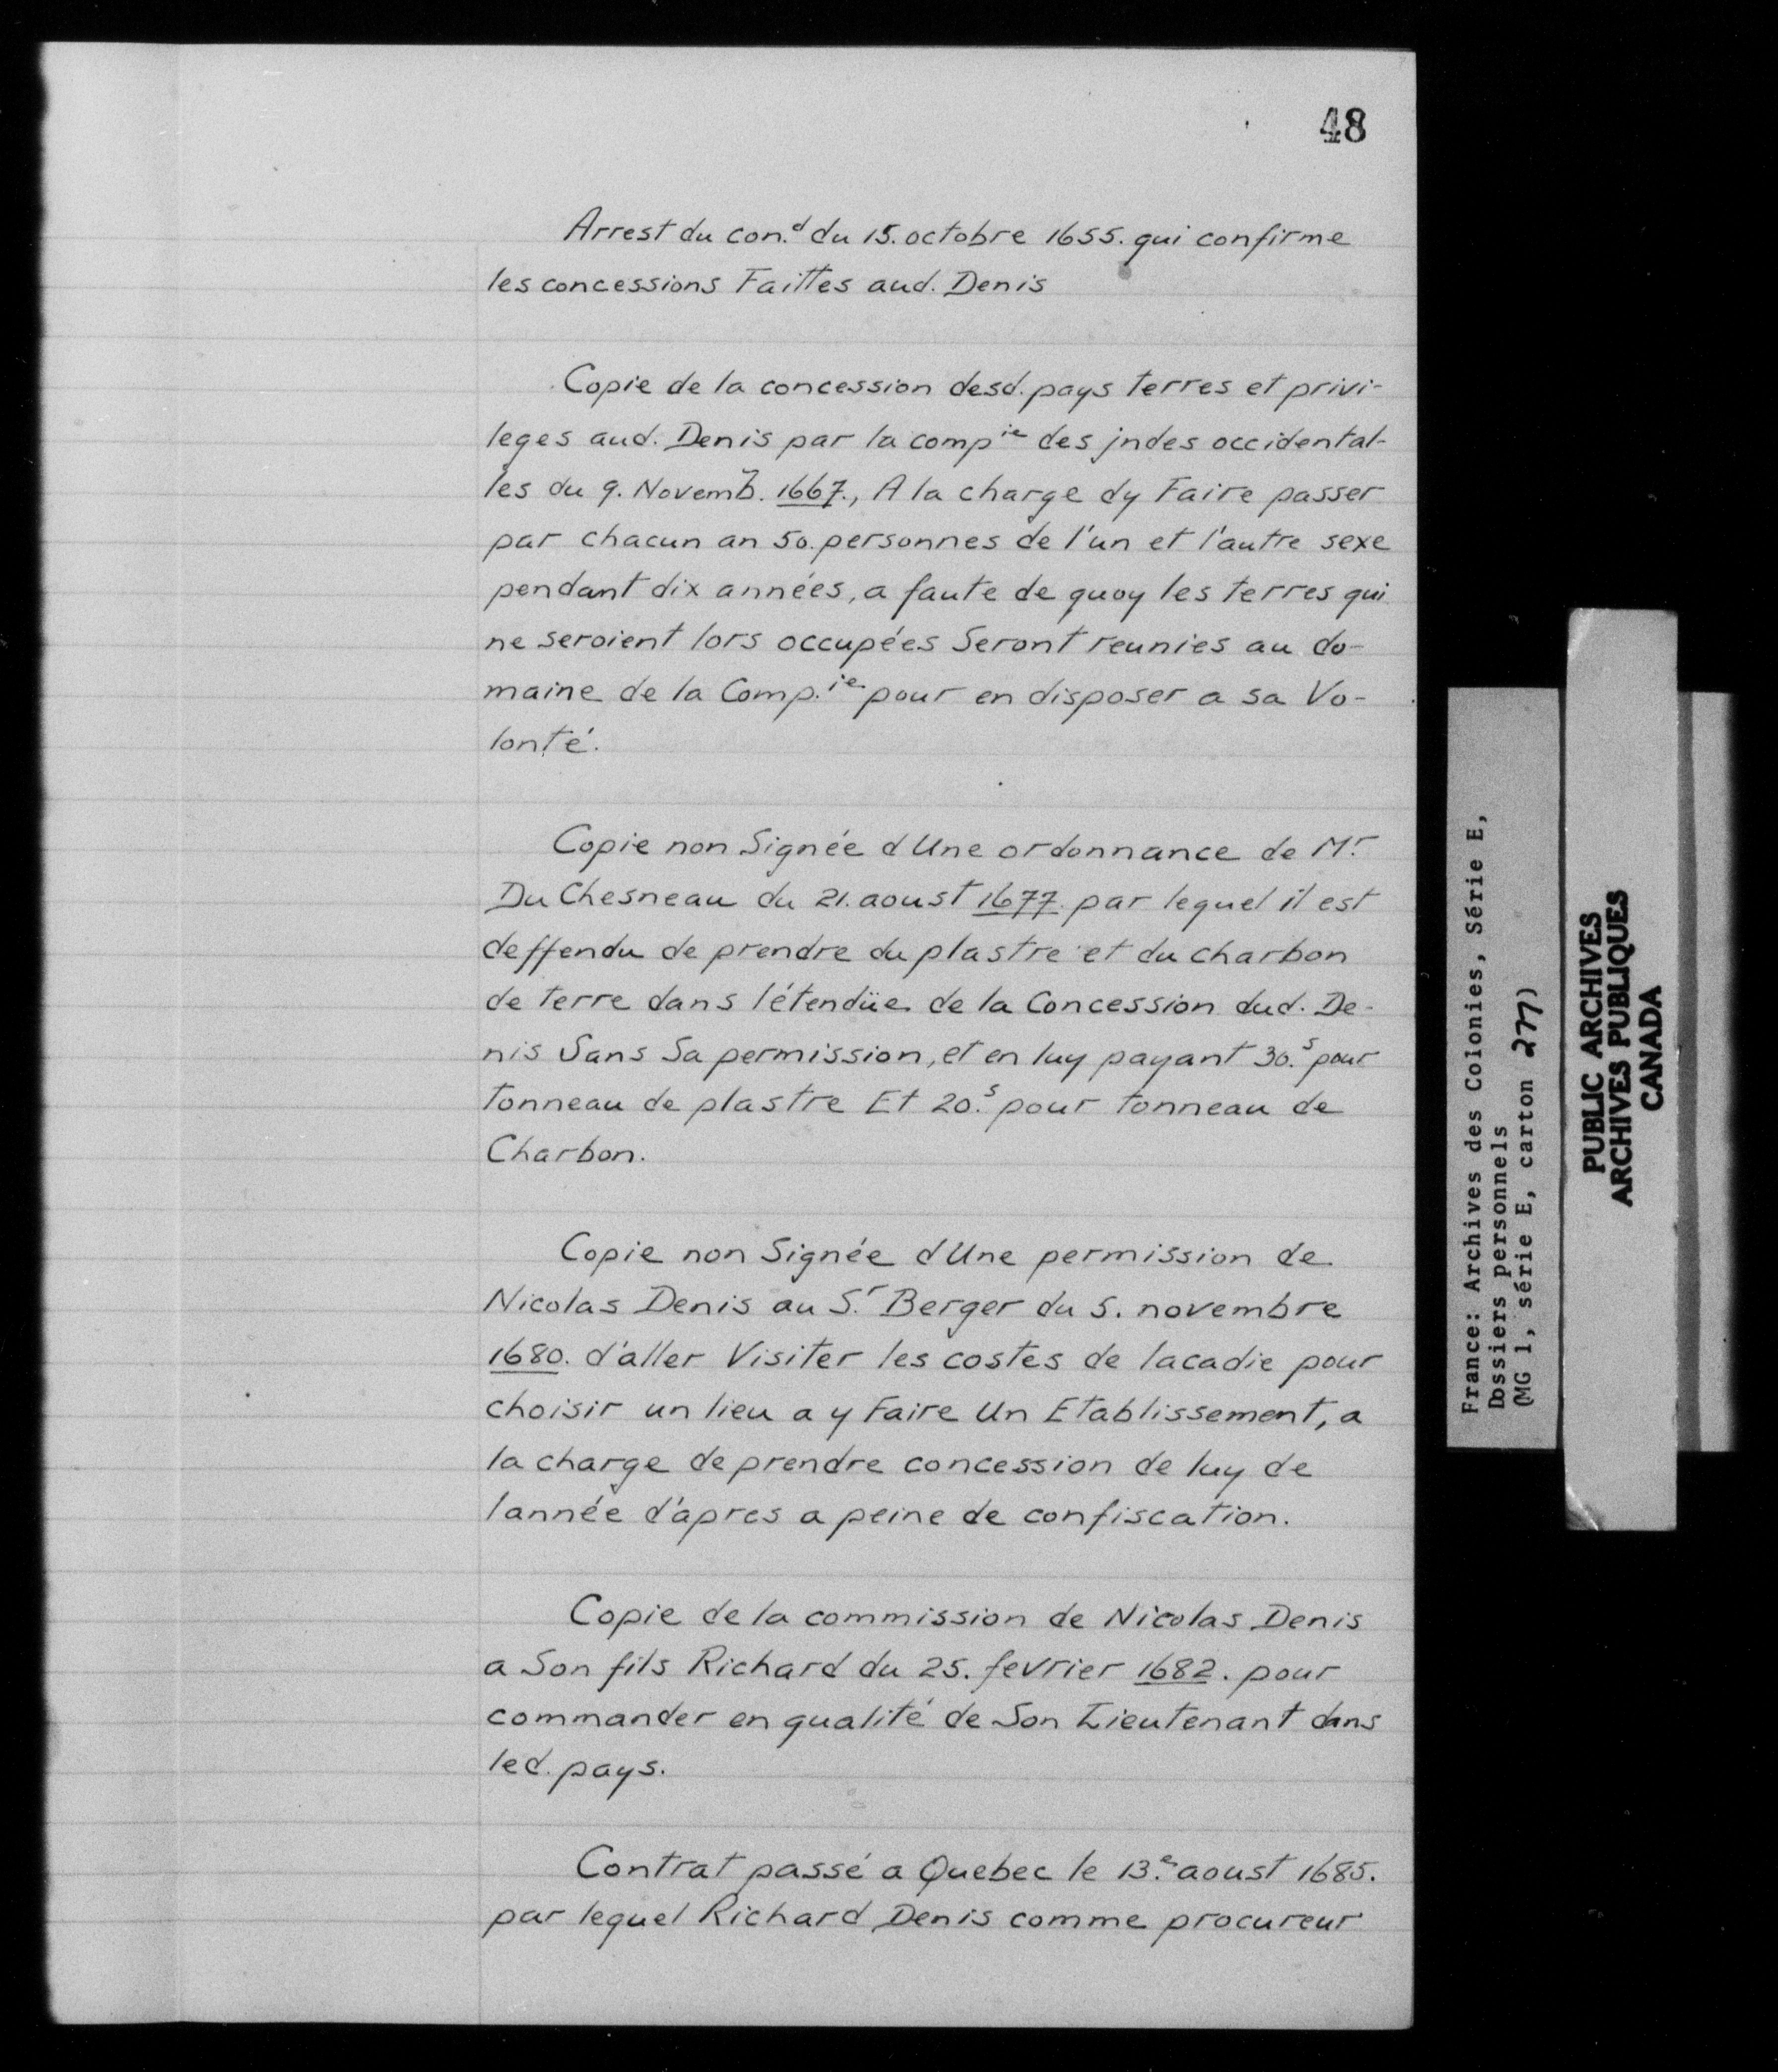 48
Arrest du con.d du 15. octobre 1655. qui confirme
les concessions Faittes aud. Denis
Copie de la concession desd. pays terres et privi-
leges aud. Denis par la compie des jndes occidental-
les du 9. Novemb. 1667., A la charge dy Faire passer
par chacun an 50. personnes de l'un et l'autre sexe
pendant dix années, a faute de quoy les terres qui
ne seroient lors occupées Seront reunies au do-
maine de la Comp.ie pour en disposer a sa Vo-
lonté.
Copie non Signée d'Une ordonnance de Mr
Du Chesneau du 21. aoust 1677. par lequel il est
deffendu de prendre du plastre et du charbon
de terre dans l'étendüe de la Concession dud. De-
nis Sans Sa permission, et en luy payant 30.s pour
tonneau de plastre Et 20.s pour tonneau de
Charbon.
Copie non Signée d'Une permission de
Nicolas Denis au S.r Berger du 5. novembre
1680. d'aller Visiter les costes de lacadie pour
choisir un lieu a y Faire Un Etablissement, a
la charge de prendre concession de luy de
lannée d'apres a peine de confiscation.
Copie de la commission de Nicolas Denis
a Son fils Richard du 25. fevrier 1682. pour
commander en qualité de Son Lieutenant dans
led. pays.
Contrat passé a Quebec le 13.e aoust 1685.
par lequel Richard Denis comme procureur
France: Archives des Colonies, Série E,
Dossiers personnels
(MG 1, série E, carton 277)
PUBLIC ARCHIVES
ARCHIVES PUBLIQUES
CANADA